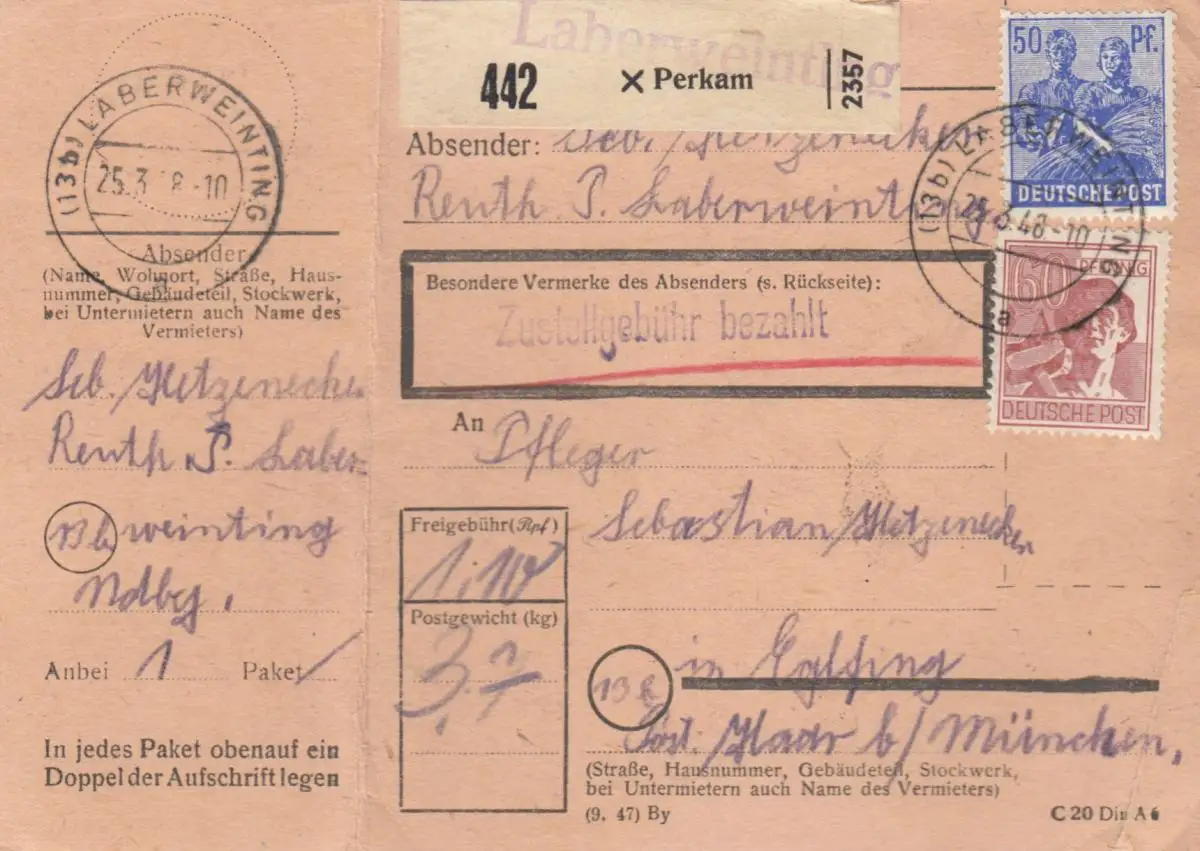 (13b) LABERWEINTING
25.3 8.-10
Absender
(Name, Wohnort, Straße, Haus-
nummer, Gebäudeteil, Stockwerk,
bei Untermietern auch Name des
Vermieters)
Seb. Hetzenecker
Reuth P. Laber-
13b weinting
Ndbg.
Anbei 1 Paket
In jedes Paket obenauf ein
Doppel der Aufschrift legen
Laberweinting
442 × Perkam 2357
Absender: Seb. Hetzenecker
Reuth P. Laberweinting
50 Pf.
DEUTSCHE POST
(13b) LABERWEINTING
25.3.48.-10
a
60 PFENNIG
DEUTSCHE POST
Besondere Vermerke des Absenders (s. Rückseite):
Zustellgebühr bezahlt
An Pfleger
Sebastian Hetzenecker
Freigebühr (Rpf)
1,10
Postgewicht (kg)
3
13b in Eglfing
Post Haar b/ München,
(Straße, Hausnummer, Gebäudeteil, Stockwerk,
bei Untermietern auch Name des Vermieters)
(9. 47) By
C 20 Din A6